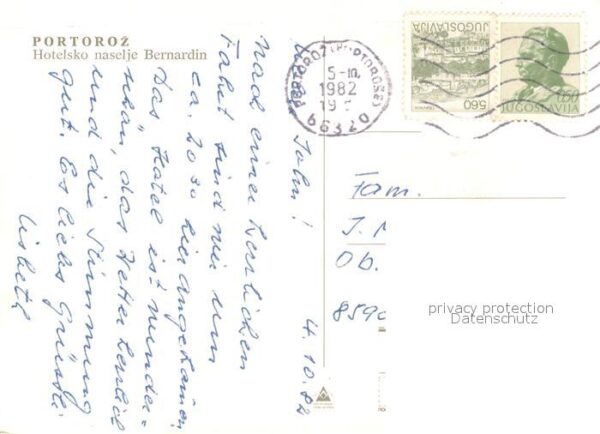 PORTOROŽ
Hotelsko naselje Bernardin
4.10.82
Nach einer herrlichen
Fahrt sind wir um
ca. 20 30 hier angekommen
Das Hotel ist wunder=
schön, das Wetter herrlich
und die Stimmung
gut. Es liebs Grüessli
Lisbeth
PORTOROŽ (PORTOROSE)
5-10.
1982
66320
JUGOSLAVIJA
560
JUGOSLAVIJA
Fam.
J.
Ob.
8590
privacy protection
Datenschutz